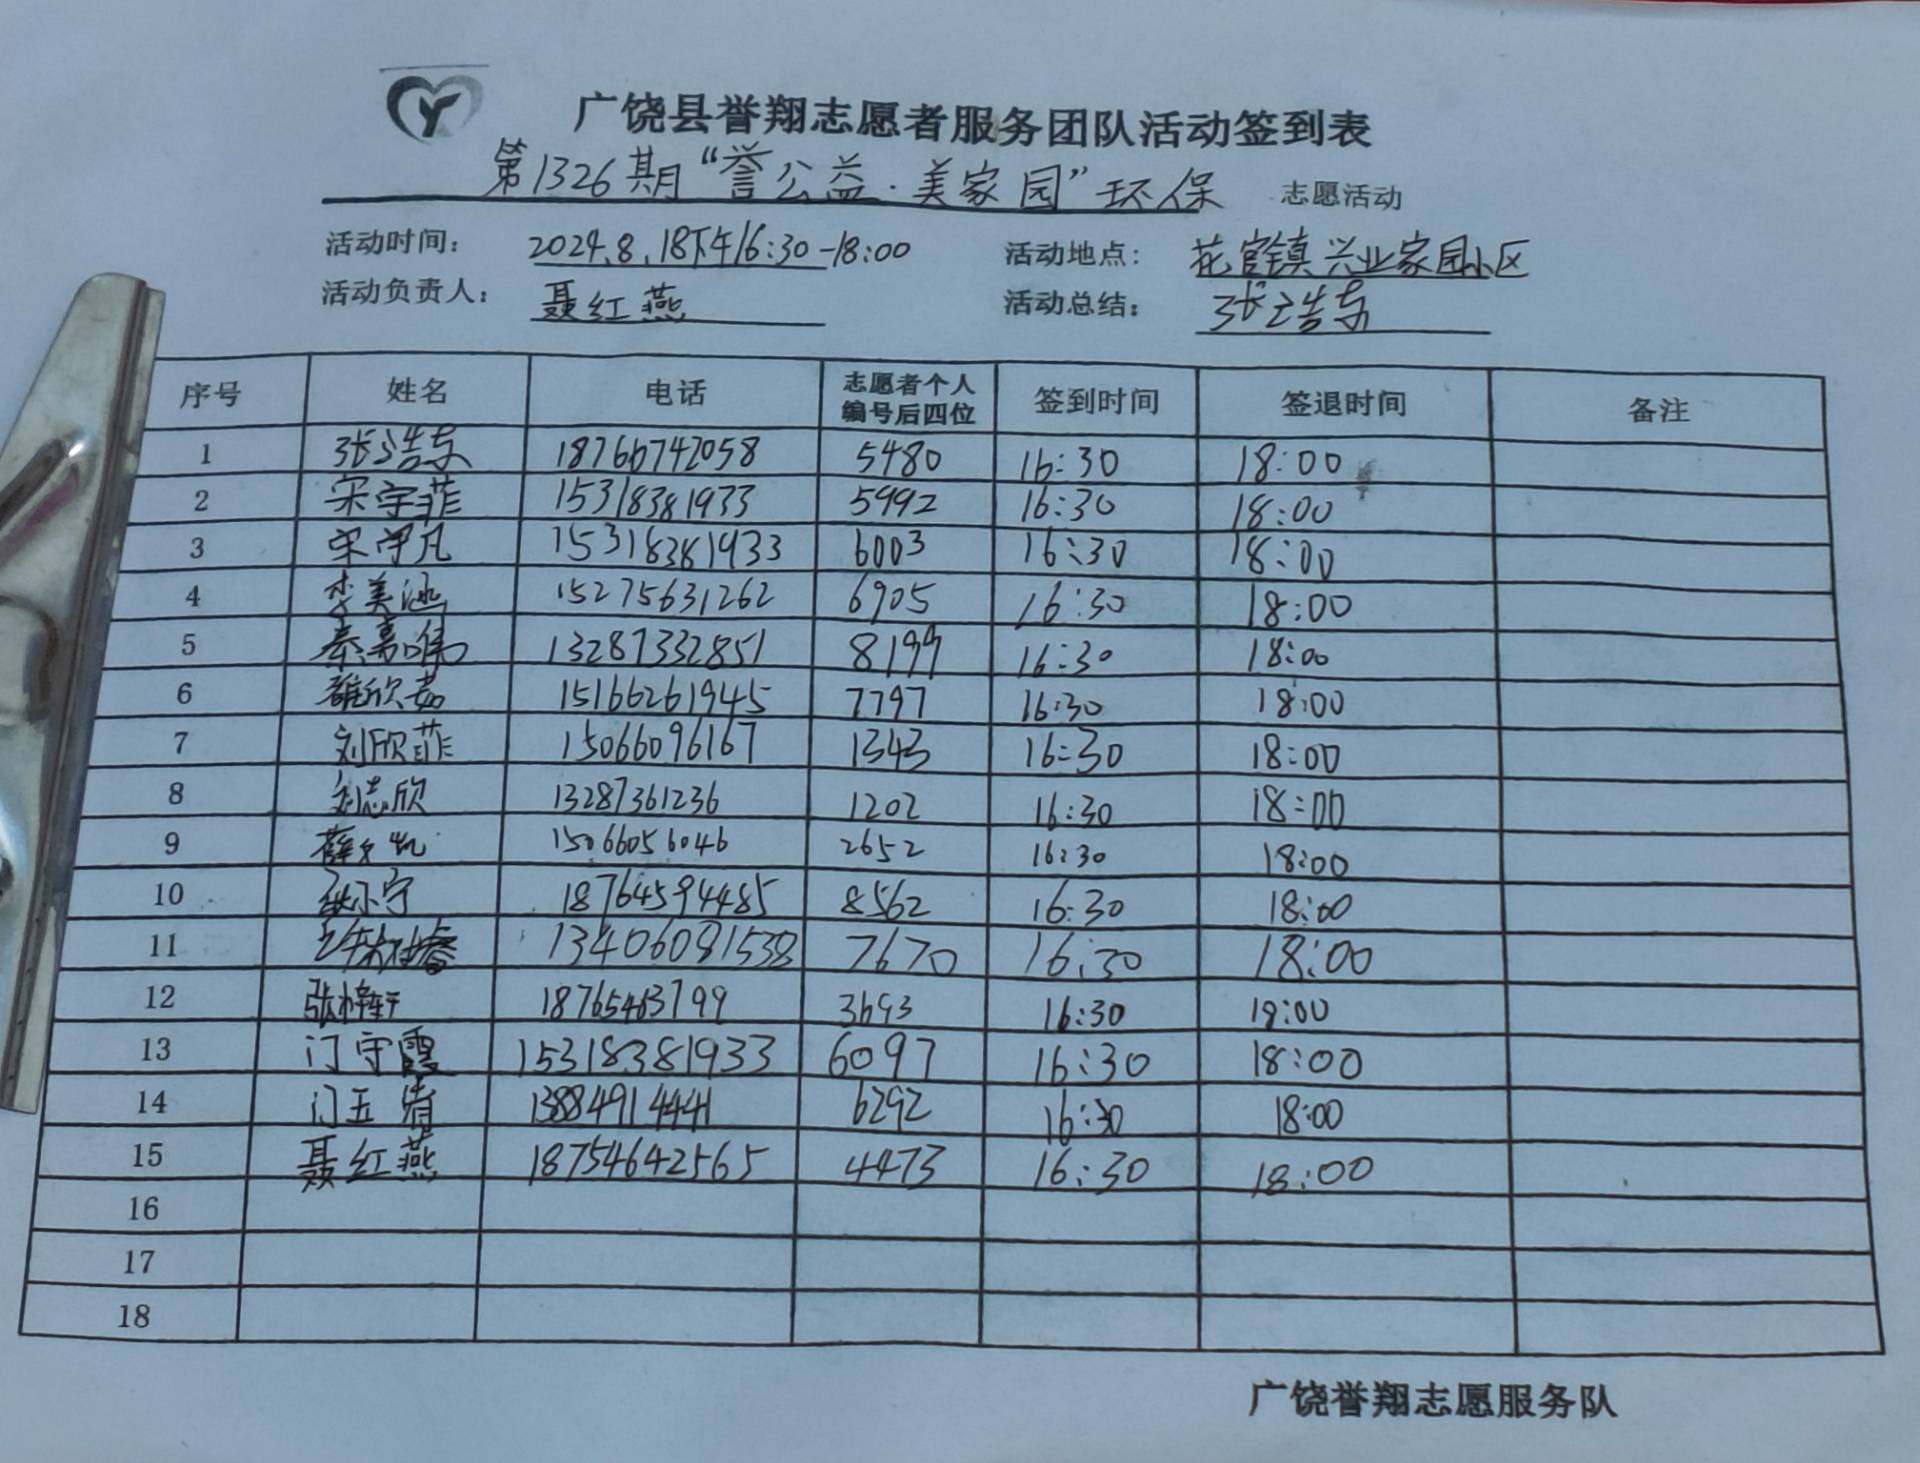 广饶县誉翔志愿者服务团队活动签到表
第1326期“誉公益·美家园”环保 志愿活动
活动时间: 2024.8.18下午16:30-18:00 活动地点: 花官镇兴业家园小区
活动负责人: 聂红燕 活动总结: 张浩东
序号 姓名 电话 志愿者个人编号后四位 签到时间 签退时间 备注
1 张浩东 18766742058 5480 16:30 18:00
2 宋宇菲 15318381933 5992 16:30 18:00
3 宋学凡 15318381933 6003 16:30 18:00
4 李美涵 15275631262 6905 16:30 18:00
5 秦嘉 13287332851 8199 16:30 18:00
6 欣茹 15166261945 7797 16:30 18:00
7 刘欣菲 15066096167 1343 16:30 18:00
8 刘志欣 13287361236 1202 16:30 18:00
9 薛 15066056046 2652 16:30 18:00
10 小宁 18764594485 8562 16:30 18:00
11 13406081538 7670 16:30 18:00
12 张梓轩 18765463799 3693 16:30 18:00
13 门守霞 15318381933 6097 16:30 18:00
14 门玉 13884914441 6292 16:30 18:00
15 聂红燕 18754642565 4473 16:30 18:00
16
17
18
广饶誉翔志愿服务队